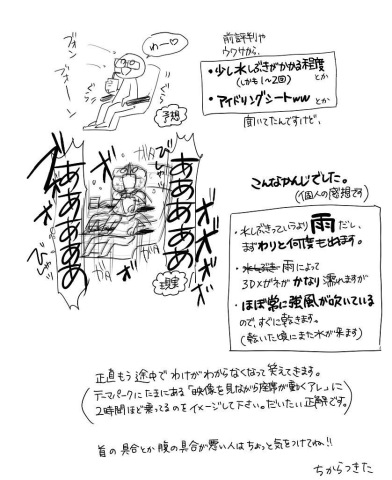 前評判や
ウワサから、
・少し水しぶきがかかる程度
(しかも1〜2回)
とか
・アイドリングシートww
とか
聞いてたんですけど、
フォン
フォーン
わー♡
ぐら
ぐら
予想
こんなかんじでした。
(個人の感想です)
・水しぶきっていうより雨だし、
まわりと何度も出ます。
・水しぶき 雨によって
3Dメガネがかなり濡れますが
・ほぼ常に強風が吹いている
ので、すぐに乾きます。
(乾いた頃にまた水が来ます)
ああああああ
ああああああ
びしゃ
ガタ
ガタ
現実
正直もう途中でわけがわからなくなって笑えてきます。
(テーマパークにたまにある「映像を見ながら座席が動くアレ」に
2時間ほど乗ってるのをイメージして下さい。だいたい正解です。)
首の具合とか腹の具合が悪い人はちょっと気をつけてね!!
ちからつきた